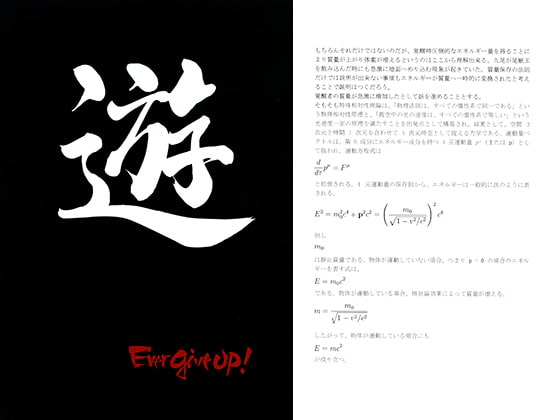 遊
Ever give up!
もちろんそれだけではないのだが、覚醒時圧倒的なエネルギー量を得ることに
より質量が上がり体重が増えるというのはここから理解出来る。九尾が尾獣玉
を飲み込んだ時にも急激に地面へめり込む現象が起きていた。質量保存の法則
だけでは説明が出来ない事情もエネルギーが質量へ一時的に変換されたと考え
ることで説明はつくだろう。
覚醒者の質量が急激に増加したとして話を進めることとする。
そもそも特殊相対性理論は、「物理法則は、すべての慣性系で同一である」とい
う特殊相対性原理と、「真空中の光の速度は、すべての慣性系で等しい」という
光速度一定の原理を満たすことを出発点として構築され、結果として、空間 3
次元と時間 1 次元を合わせて 4 次元時空として捉える力学である。運動量ベ
クトルは、第 0 成分にエネルギー成分を持つ 4 元運動量 p^μ (または p) として
扱われ、運動方程式は
d/dτ p^μ = F^μ
と記載される。4 元運動量の保存則から、エネルギーは一般的に次のように表
される。
E² = m₀²c⁴ + p²c² = (m₀/√(1 − v²/c²))² c⁴
但し
m₀
は静止質量である。物体が運動していない場合、つまり p = 0 の場合のエネル
ギーを表す式は、
E = m₀c²
である。物体が運動している場合、相対論効果によって質量が増える。
m = m₀/√(1 − v²/c²)
したがって、物体が運動している場合にも
E = mc²
が成り立つ。